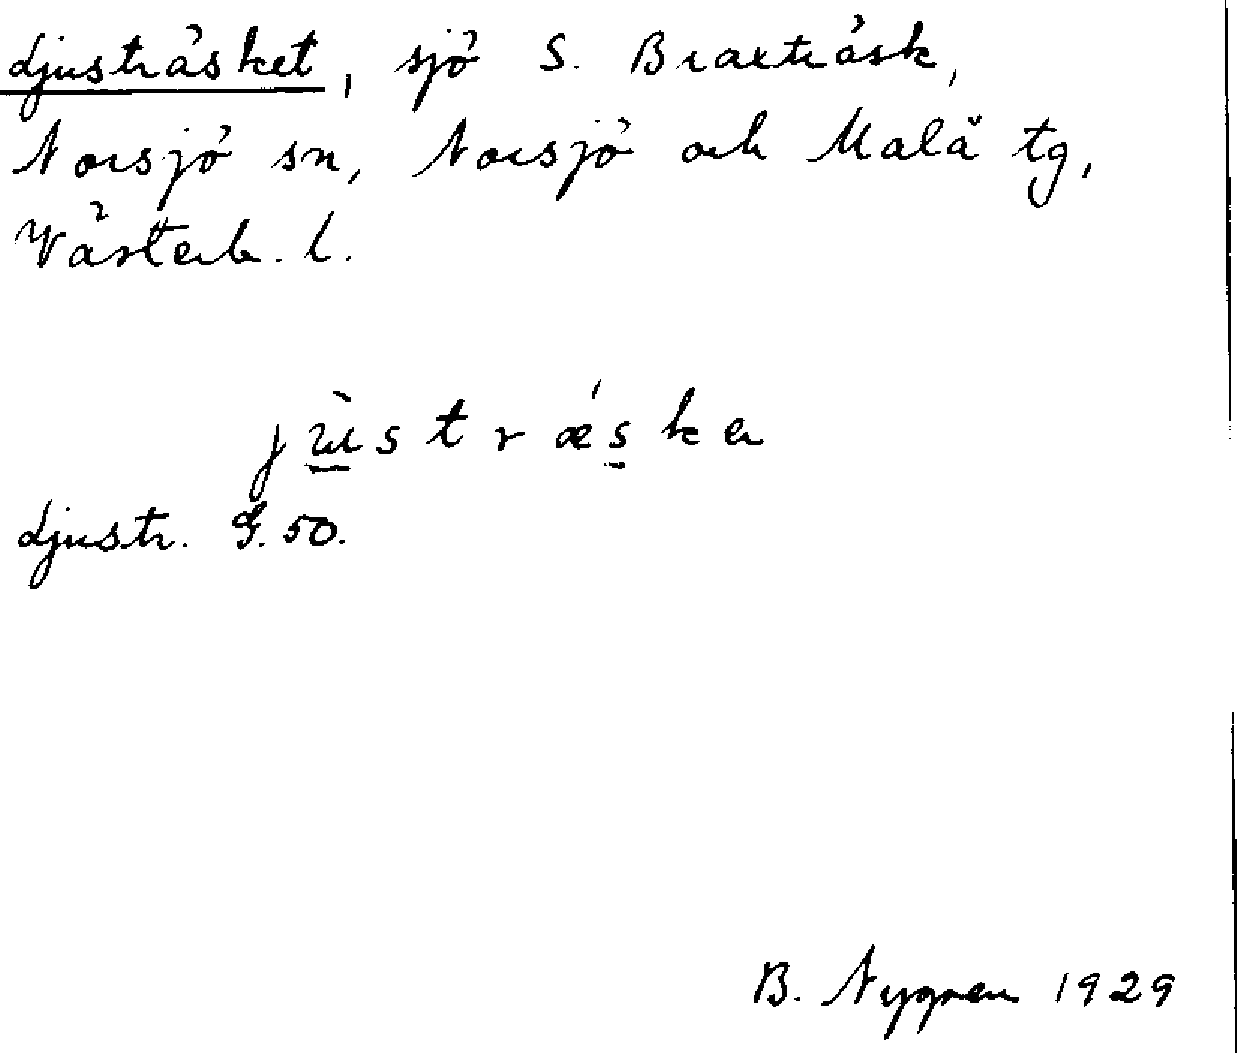 Ljusträsket, sjö S. Braxträsk,
Norsjö sn, Norsjö och Malå tg,
Västerb. l.
jùstræ´ska
Ljustr. G. 50.
B. Nygren 1929